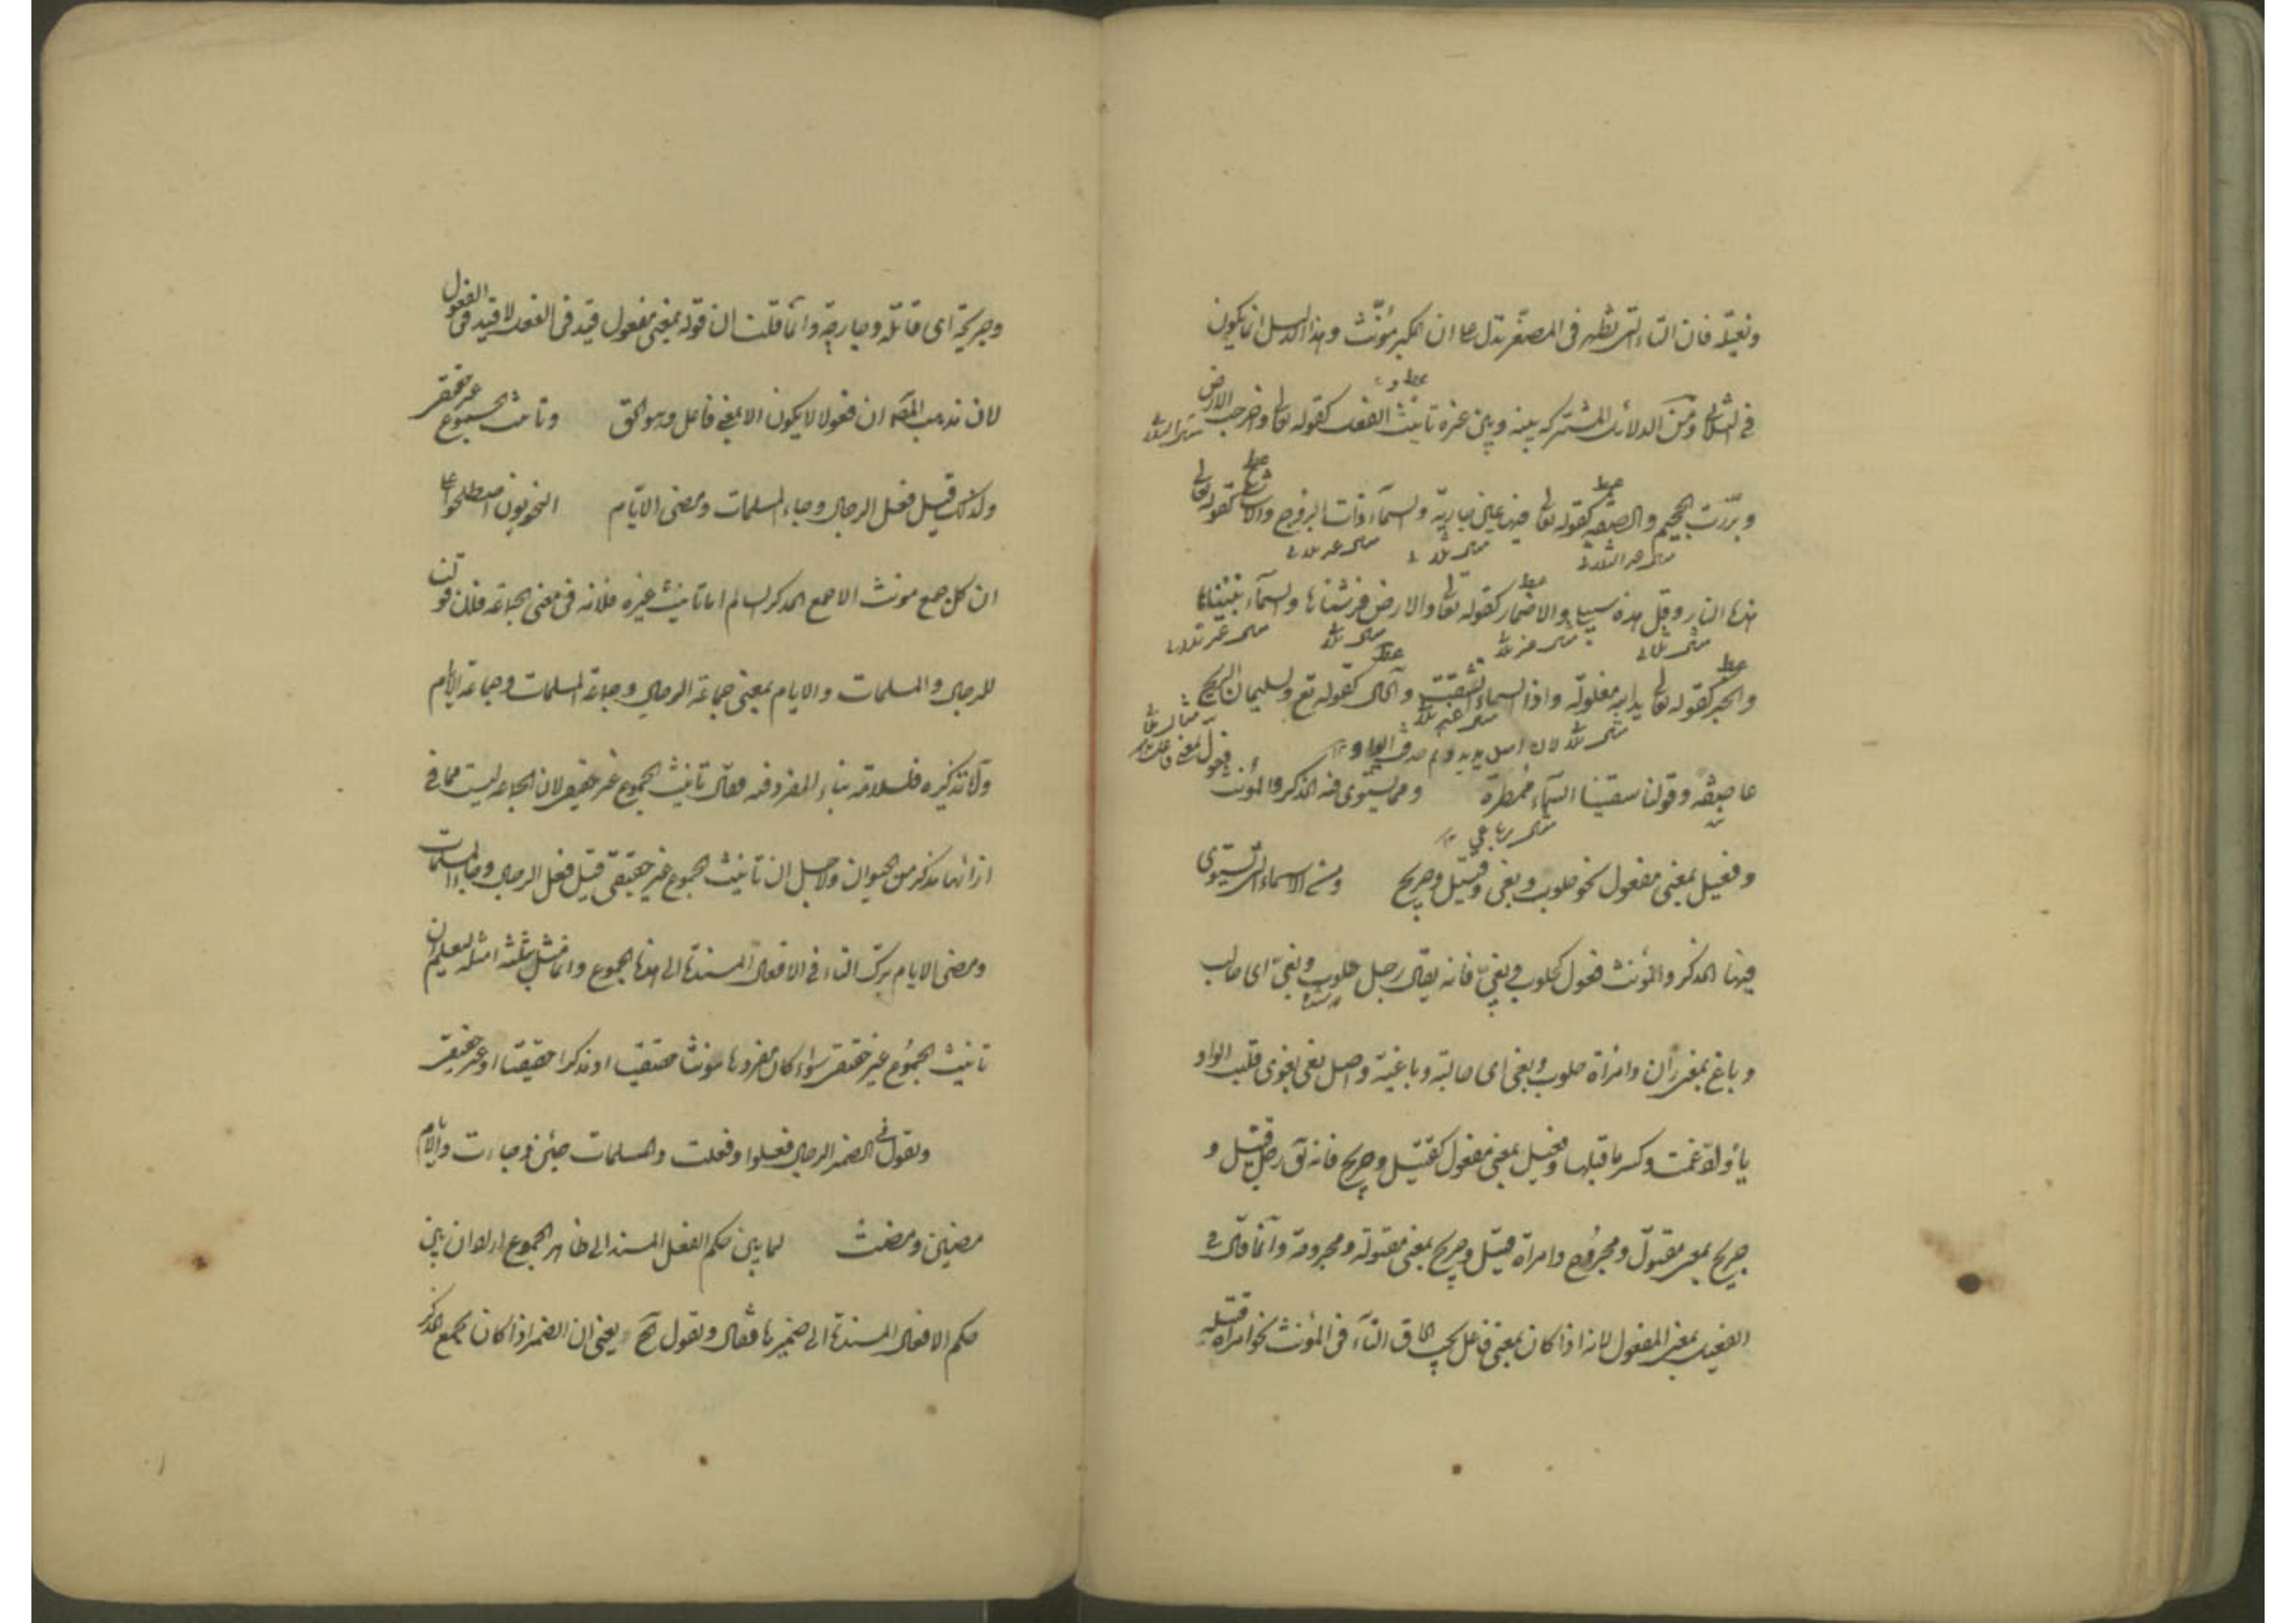 ونعيلة فان التاء التى تظهر فى المصغر تدل على ان المكبر مؤنث وهذا الدليل انما يكون
فى الثلاثى ومن الدلائل المشتركة بينه وبين غيره تانيث الفعل كقوله تعالى واخرجت الارض
وبرزت الجحيم والصفة كقوله تعالى فيها عين جارية والسماء ذات البروج والاشارة كقوله تعالى
هذه النار وقل هذه سبيلى والاضمار كقوله تعالى والارض فرشناها والسماء بنيناها
والخبر كقوله تعالى يد الله مغلولة واذا السماء انشقت والحال كقوله تع ولسليمان الريح
عاصفة وقولنا سقينا السماء ممطرة ومما يستوى فيه المذكر والمؤنث فعول بمعنى فاعل
مثال رباعى
وفعيل بمعنى مفعول نحو حلوب وبغى وقتيل وجريح ومن الاسماء التى تستوى
فيها المذكر والمؤنث فعول كحلوب وبغى فانه يقال رجل حلوب وبغى اى حالب
وباغ بمعنى زان وامرأة حلوب وبغى اى حالبة وباغية واصل بغى بغوى قلبت الواو
ياء وادغمت وكسر ما قبلها وفعيل بمعنى مفعول كقتيل وجريح فانه يق رجل قتيل و
جريح بمعنى مقتول ومجروح وامرأة قتيل وجريح بمعنى مقتولة ومجروحة وانما قال فى
الفعيل بمعنى المفعول لانه اذا كان بمعنى فاعل يجب الحاق التاء فى المؤنث نحو امرأة قتيلة
وجريحة اى قاتلة وجارحة وانما قلت ان قوله بمعنى مفعول قيد فى الفعيل لا قيد فى الفعول
لان مذهب المص ان فعولا لا يكون الا بمعنى فاعل وهو الحق وتانيث الجموع غير حقيقى
ولذلك قيل فعل الرجال وجاء المسلمات ومضى الايام النحويون اصطلحوا على
ان كل جمع مونث الا جمع المذكر السالم اما تانيث غيره فلانه فى معنى الجماعة فلان قولنا
الرجال والمسلمات والايام بمعنى جماعة الرجال وجماعة المسلمات وجماعة الايام
واما تذكيره فلسلامة بناء المفرد فيه فقال تانيث الجموع غير حقيقى لان الجماعة ليست مما فى
ازائها مذكر من الحيوان ولاجل ان تانيث الجموع غير حقيقى قيل فعل الرجال وجاء المسلمات
ومضى الايام بترك التاء فى الافعال المسندة الى هذه الجموع وانما مثل بثلثة امثلة ليعلم ان
تانيث الجموع غير حقيقى سواء كان مفردها مونثا حقيقيا او مذكرا حقيقيا او غير حقيقى
وتقول فى الضمير الرجال فعلوا وفعلت والمسلمات جئن وجاءت والايام
مضين ومضت لما بين حكم الفعل المسند الى ظاهر الجموع اراد ان يبين
حكم الافعال المسندة الى ضميرها فقال وتقول الخ يعنى ان الضمير اذا كان لجمع المذكر